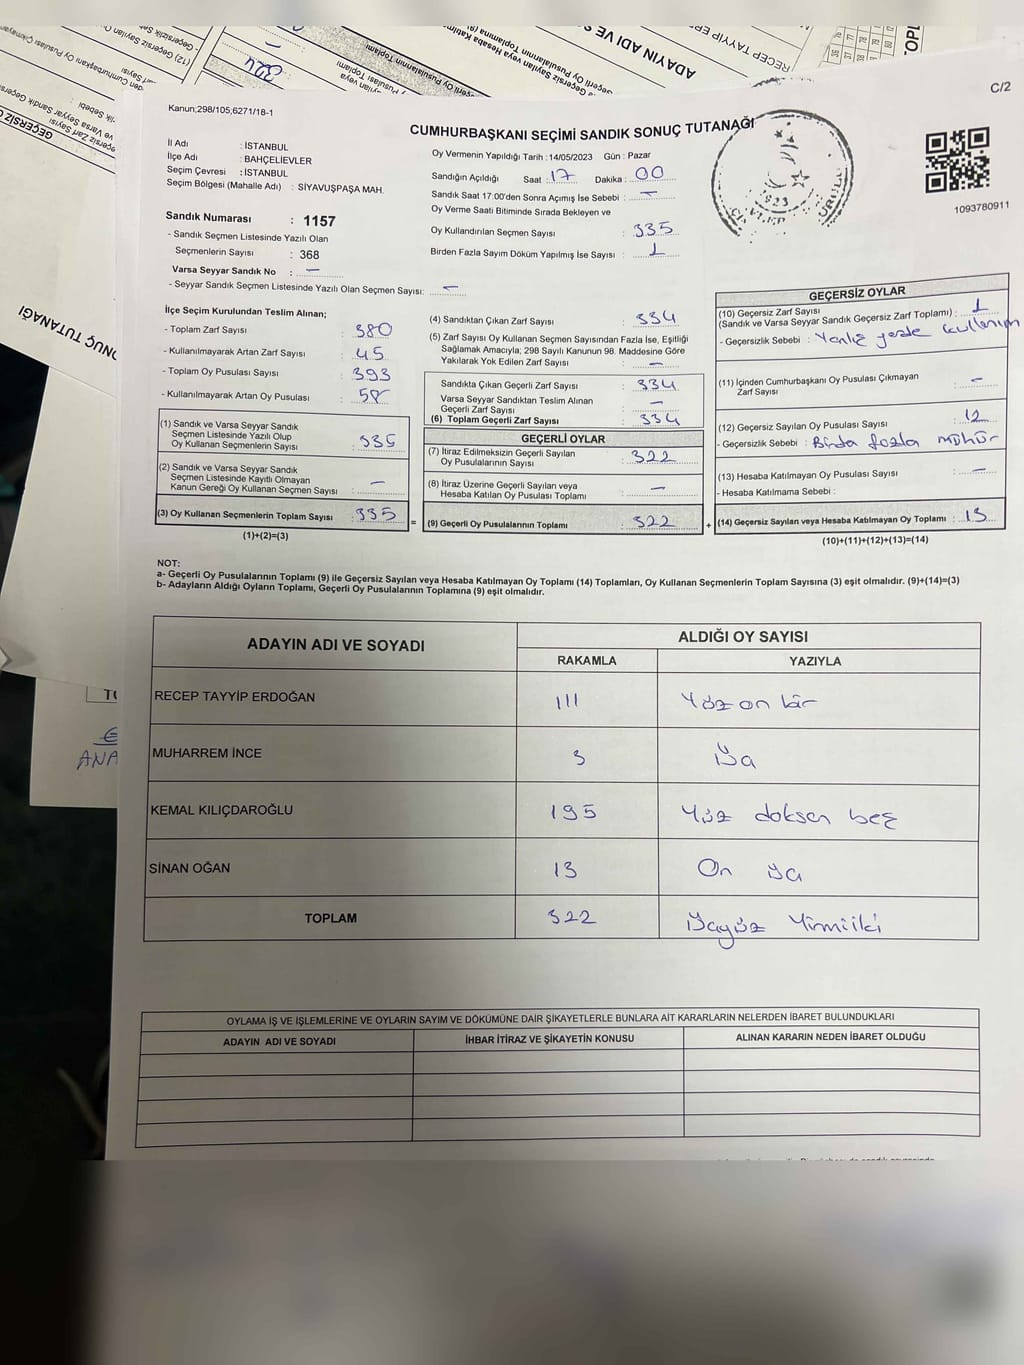 C/2
Kanun;298/105;6271/18-1
CUMHURBAŞKANI SEÇİMİ SANDIK SONUÇ TUTANAĞI
İl Adı : İSTANBUL
İlçe Adı : BAHÇELİEVLER
Seçim Çevresi : İSTANBUL
Seçim Bölgesi (Mahalle Adı) : SİYAVUŞPAŞA MAH.
Sandık Numarası : 1157
- Sandık Seçmen Listesinde Yazılı Olan
Seçmenlerin Sayısı : 368
Varsa Seyyar Sandık No : —
- Seyyar Sandık Seçmen Listesinde Yazılı Olan Seçmen Sayısı: —
Oy Vermenin Yapıldığı Tarih :14/05/2023 Gün : Pazar
Sandığın Açıldığı Saat : 17 Dakika : 00
Sandık Saat 17:00'den Sonra Açımış İse Sebebi : —
Oy Verme Saati Bitiminde Sırada Bekleyen ve
Oy Kullandırılan Seçmen Sayısı : 335
Birden Fazla Sayım Döküm Yapılmış İse Sayısı : 1
1093780911
İlçe Seçim Kurulundan Teslim Alınan;
- Toplam Zarf Sayısı : 380
- Kullanılmayarak Artan Zarf Sayısı : 45
- Toplam Oy Pusulası Sayısı : 393
- Kullanılmayarak Artan Oy Pusulası : 58
(1) Sandık ve Varsa Seyyar Sandık
Seçmen Listesinde Yazılı Olup
Oy Kullanan Seçmenlerin Sayısı : 335
(2) Sandık ve Varsa Seyyar Sandık
Seçmen Listesinde Kayıtlı Olmayan
Kanun Gereği Oy Kullanan Seçmen Sayısı : —
(3) Oy Kullanan Seçmenlerin Toplam Sayısı : 335
(1)+(2)=(3)
(4) Sandıktan Çıkan Zarf Sayısı : 334
(5) Zarf Sayısı Oy Kullanan Seçmen Sayısından Fazla İse, Eşitliği
Sağlamak Amacıyla; 298 Sayılı Kanunun 98. Maddesine Göre
Yakılarak Yok Edilen Zarf Sayısı : —
Sandıkta Çıkan Geçerli Zarf Sayısı : 334
Varsa Seyyar Sandıktan Teslim Alınan
Geçerli Zarf Sayısı : —
(6) Toplam Geçerli Zarf Sayısı : 334
GEÇERLİ OYLAR
(7) İtiraz Edilmeksizin Geçerli Sayılan
Oy Pusulalarının Sayısı : 322
(8) İtiraz Üzerine Geçerli Sayılan veya
Hesaba Katılan Oy Pusulası Toplamı : —
= (9) Geçerli Oy Pusulalarının Toplamı : 322
GEÇERSİZ OYLAR
(10) Geçersiz Zarf Sayısı : 1
(Sandık ve Varsa Seyyar Sandık Geçersiz Zarf Toplamı)
- Geçersizlik Sebebi : Yanlış yerde kullanım
(11) İçinden Cumhurbaşkanı Oy Pusulası Çıkmayan
Zarf Sayısı : —
(12) Geçersiz Sayılan Oy Pusulası Sayısı : 12
- Geçersizlik Sebebi : Birda fazla mühür
(13) Hesaba Katılmayan Oy Pusulası Sayısı : —
- Hesaba Katılmama Sebebi :
+ (14) Geçersiz Sayılan veya Hesaba Katılmayan Oy Toplamı : 13
(10)+(11)+(12)+(13)=(14)
NOT:
a- Geçerli Oy Pusulalarının Toplamı (9) ile Geçersiz Sayılan veya Hesaba Katılmayan Oy Toplamı (14) Toplamları, Oy Kullanan Seçmenlerin Toplam Sayısına (3) eşit olmalıdır. (9)+(14)=(3)
b- Adayların Aldığı Oyların Toplamı, Geçerli Oy Pusulalarının Toplamına (9) eşit olmalıdır.
ADAYIN ADI VE SOYADI ALDIĞI OY SAYISI
RAKAMLA YAZIYLA
RECEP TAYYİP ERDOĞAN 111 Yüz on bir
MUHARREM İNCE 3 Üç
KEMAL KILIÇDAROĞLU 195 Yüz doksan beş
SİNAN OĞAN 13 On üç
TOPLAM 322 Üçyüz Yirmiiki
OYLAMA İŞ VE İŞLEMLERİNE VE OYLARIN SAYIM VE DÖKÜMÜNE DAİR ŞİKAYETLERLE BUNLARA AİT KARARLARIN NELERDEN İBARET BULUNDUKLARI
ADAYIN ADI VE SOYADI İHBAR İTİRAZ VE ŞİKAYETİN KONUSU ALINAN KARARIN NEDEN İBARET OLDUĞU